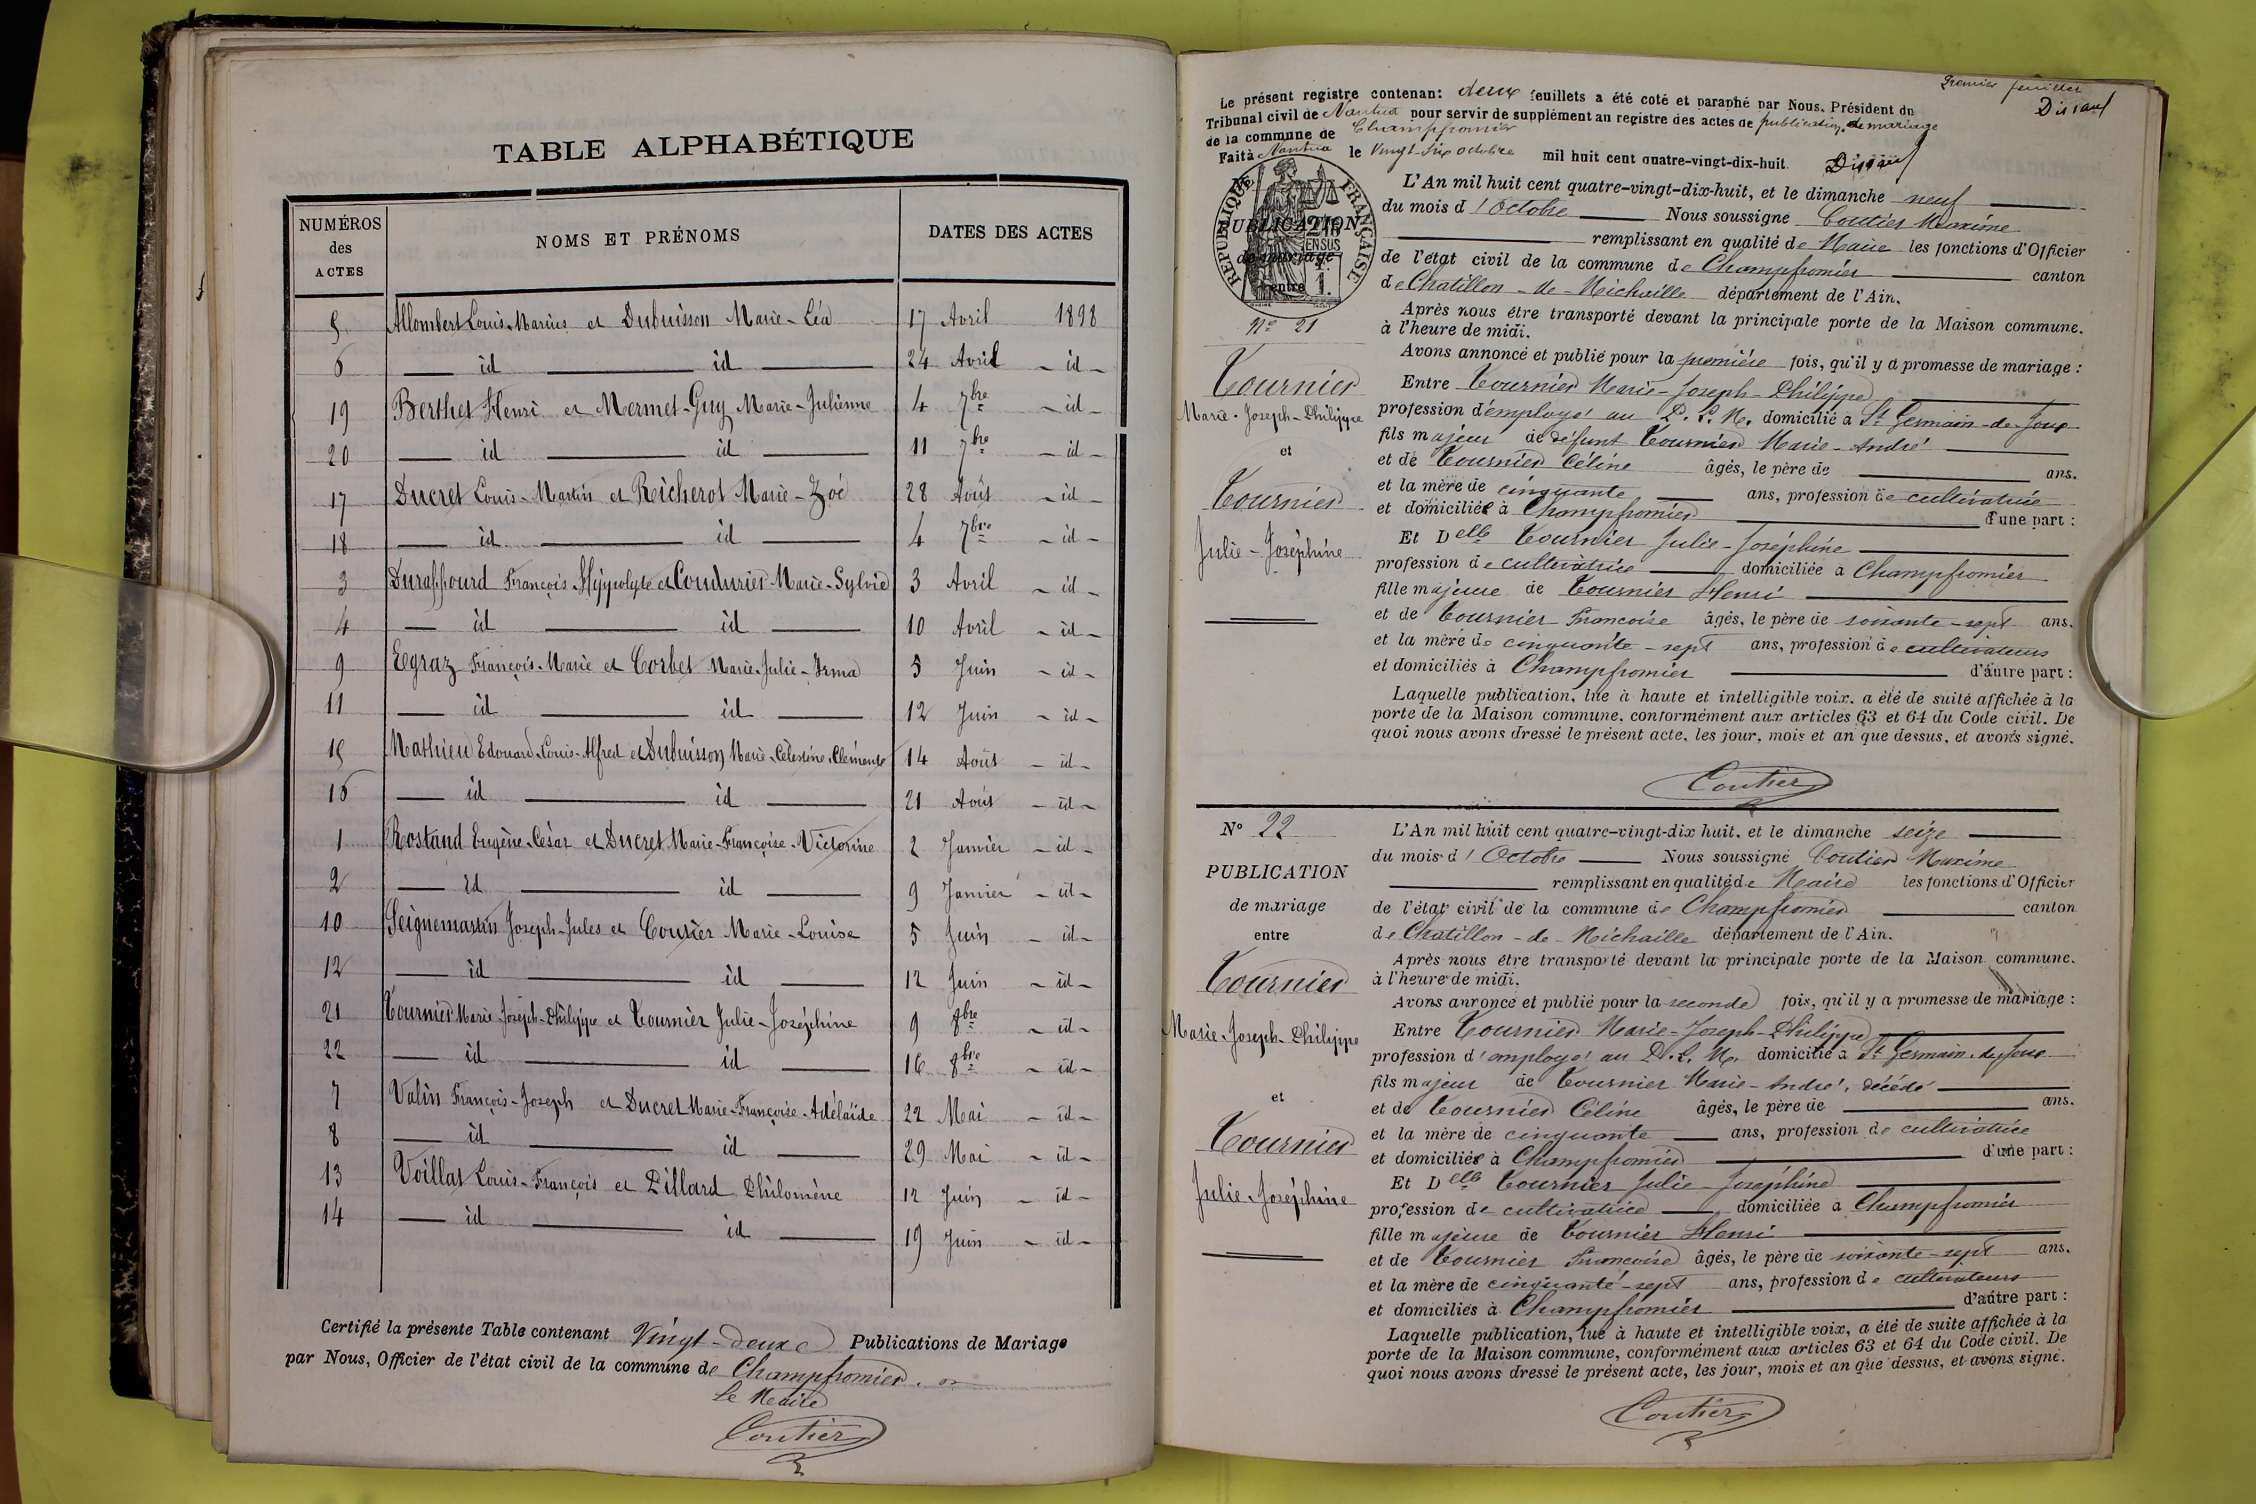 TABLE ALPHABÉTIQUE
NUMÉROS des ACTES
NOMS ET PRÉNOMS
DATES DES ACTES
5 Allombert Louis-Marius et Dubuisson Marie-Léa 17 Avril 1898
6 — id — id — 24 Avril - id -
19 Berthet Henri et Mermet-Guy Marie-Julienne 4 7bre - id -
20 — id — id — 11 7bre - id -
17 Ducret Louis-Martin et Richerot Marie-Zoé 28 Août - id -
18 — id — id — 4 7bre - id -
3 Duraffourd François-Hyppolyte et Coudurier Marie-Sylvie 3 Avril - id -
4 — id — id — 10 Avril - id -
9 Egraz François-Marie et Corbet Marie-Julie-Irma 5 Juin - id -
11 — id — id — 12 Juin - id -
15 Mathieu Edouard-Louis-Alfred et Dubuisson Marie-Célestine-Clémente 14 Août - id -
16 — id — id — 21 Août - id -
1 Rostand Eugène-César et Ducret Marie-Françoise-Victorine 2 Janvier - id -
2 — id — id — 9 Janvier - id -
10 Seignemartin Joseph-Jules et Coutier Marie-Louise 5 Juin - id -
12 — id — id — 12 Juin - id -
21 Tournier Marie-Joseph-Philippe et Tournier Julie-Joséphine 9 8bre - id -
22 — id — id — 16 8bre - id -
7 Valin François-Joseph et Ducret Marie-Françoise-Adélaïde 22 Mai - id -
8 — id — id — 29 Mai - id -
13 Voillat Louis-François et Pillard Philomène 12 Juin - id -
14 — id — id — 19 Juin - id -
Certifié la présente Table contenant Vingt-deux Publications de Mariage
par Nous, Officier de l'état civil de la commune de Champfromier.
Le Maire
Coutier
Premier feuillet
Le présent registre contenant deux feuillets a été coté et paraphé par Nous, Président du
Tribunal civil de Nantua pour servir de supplément au registre des actes de publication de mariage
de la commune de Champfromier
Fait à Nantua le vingt-six octobre mil huit cent quatre-vingt-dix-huit.
RÉPUBLIQUE FRANÇAISE
PUBLICATION
de mariage
entre
No 21
Tournier
Marie-Joseph-Philippe
et
Tournier
Julie-Joséphine
L'An mil huit cent quatre-vingt-dix-huit, et le dimanche neuf
du mois d'Octobre Nous soussigné Coutier Maxime
remplissant en qualité de Maire les fonctions d'Officier
de l'état civil de la commune de Champfromier canton
de Chatillon-de-Michaille département de l'Ain.
Après nous être transporté devant la principale porte de la Maison commune,
à l'heure de midi.
Avons annoncé et publié pour la première fois, qu'il y a promesse de mariage :
Entre Tournier Marie-Joseph-Philippe
profession d'employé au P. L. M. domicilié à St Germain-de-Joux
fils majeur de défunt Tournier Marie-André
et de Tournier Céline âgés, le père de ans.
et la mère de cinquante ans, profession de cultivatrice
et domiciliée à Champfromier d'une part :
Et Delle Tournier Julie-Joséphine
profession de cultivatrice domiciliée à Champfromier
fille majeure de Tournier Henri
et de Tournier Francoise âgés, le père de soixante-sept ans.
et la mère de cinquante-sept ans, profession de cultivateurs
et domiciliés à Champfromier d'autre part :
Laquelle publication, lue à haute et intelligible voix, a été de suite affichée à la
porte de la Maison commune, conformément aux articles 63 et 64 du Code civil. De
quoi nous avons dressé le présent acte, les jour, mois et an que dessus, et avons signé.
Coutier
No 22
PUBLICATION
de mariage
entre
Tournier
Marie-Joseph-Philippe
et
Tournier
Julie-Joséphine
L'An mil huit cent quatre-vingt-dix huit, et le dimanche seize
du mois d'Octobre Nous soussigné Coutier Maxime
remplissant en qualité de Maire les fonctions d'Officier
de l'état civil de la commune de Champfromier canton
de Chatillon-de-Michaille département de l'Ain.
Après nous être transporté devant la principale porte de la Maison commune,
à l'heure de midi.
Avons annoncé et publié pour la seconde fois, qu'il y a promesse de mariage :
Entre Tournier Marie-Joseph-Philippe
profession d'employé au P. L. M. domicilié à St Germain-de-Joux
fils majeur de Tournier Marie-André, décédé
et de Tournier Céline âgés, le père de ans.
et la mère de cinquante ans, profession de cultivatrice
et domiciliée à Champfromier d'une part :
Et Delle Tournier Julie-Joséphine
profession de cultivatrice domiciliée à Champfromier
fille majeure de Tournier Henri
et de Tournier Francoise âgés, le père de soixante-sept ans.
et la mère de cinquante-sept ans, profession de cultivateurs
et domiciliés à Champfromier d'autre part :
Laquelle publication, lue à haute et intelligible voix, a été de suite affichée à la
porte de la Maison commune, conformément aux articles 63 et 64 du Code civil. De
quoi nous avons dressé le présent acte, les jour, mois et an que dessus, et avons signé.
Coutier